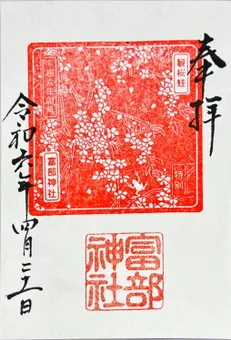 奉拝
観桜蛙
特別
富部神社
富部神社
令和六年四月二十一日